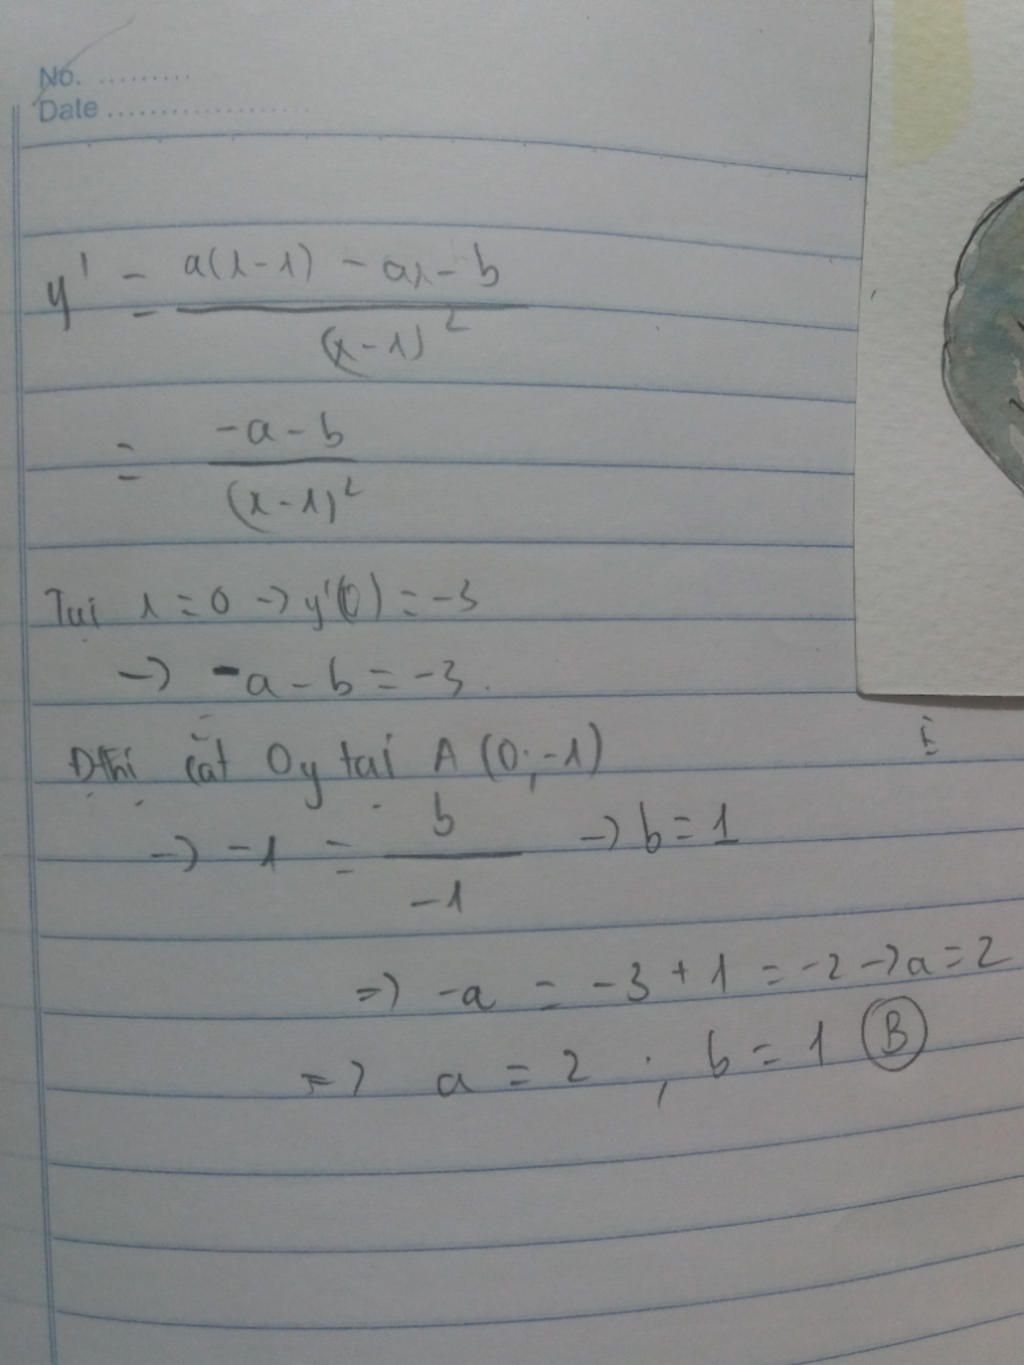 No. .........
Date ..................
y' = a(x-1) - ax - b
(x-1)²
= -a - b
(x-1)²
Tại x = 0 -> y'(0) = -3
-> -a - b = -3.
Đthị cắt Oy tại A (0; -1)
-> -1 = b -> b = 1
-1
=> -a = -3 + 1 = -2 -> a = 2
=> a = 2 ; b = 1 B